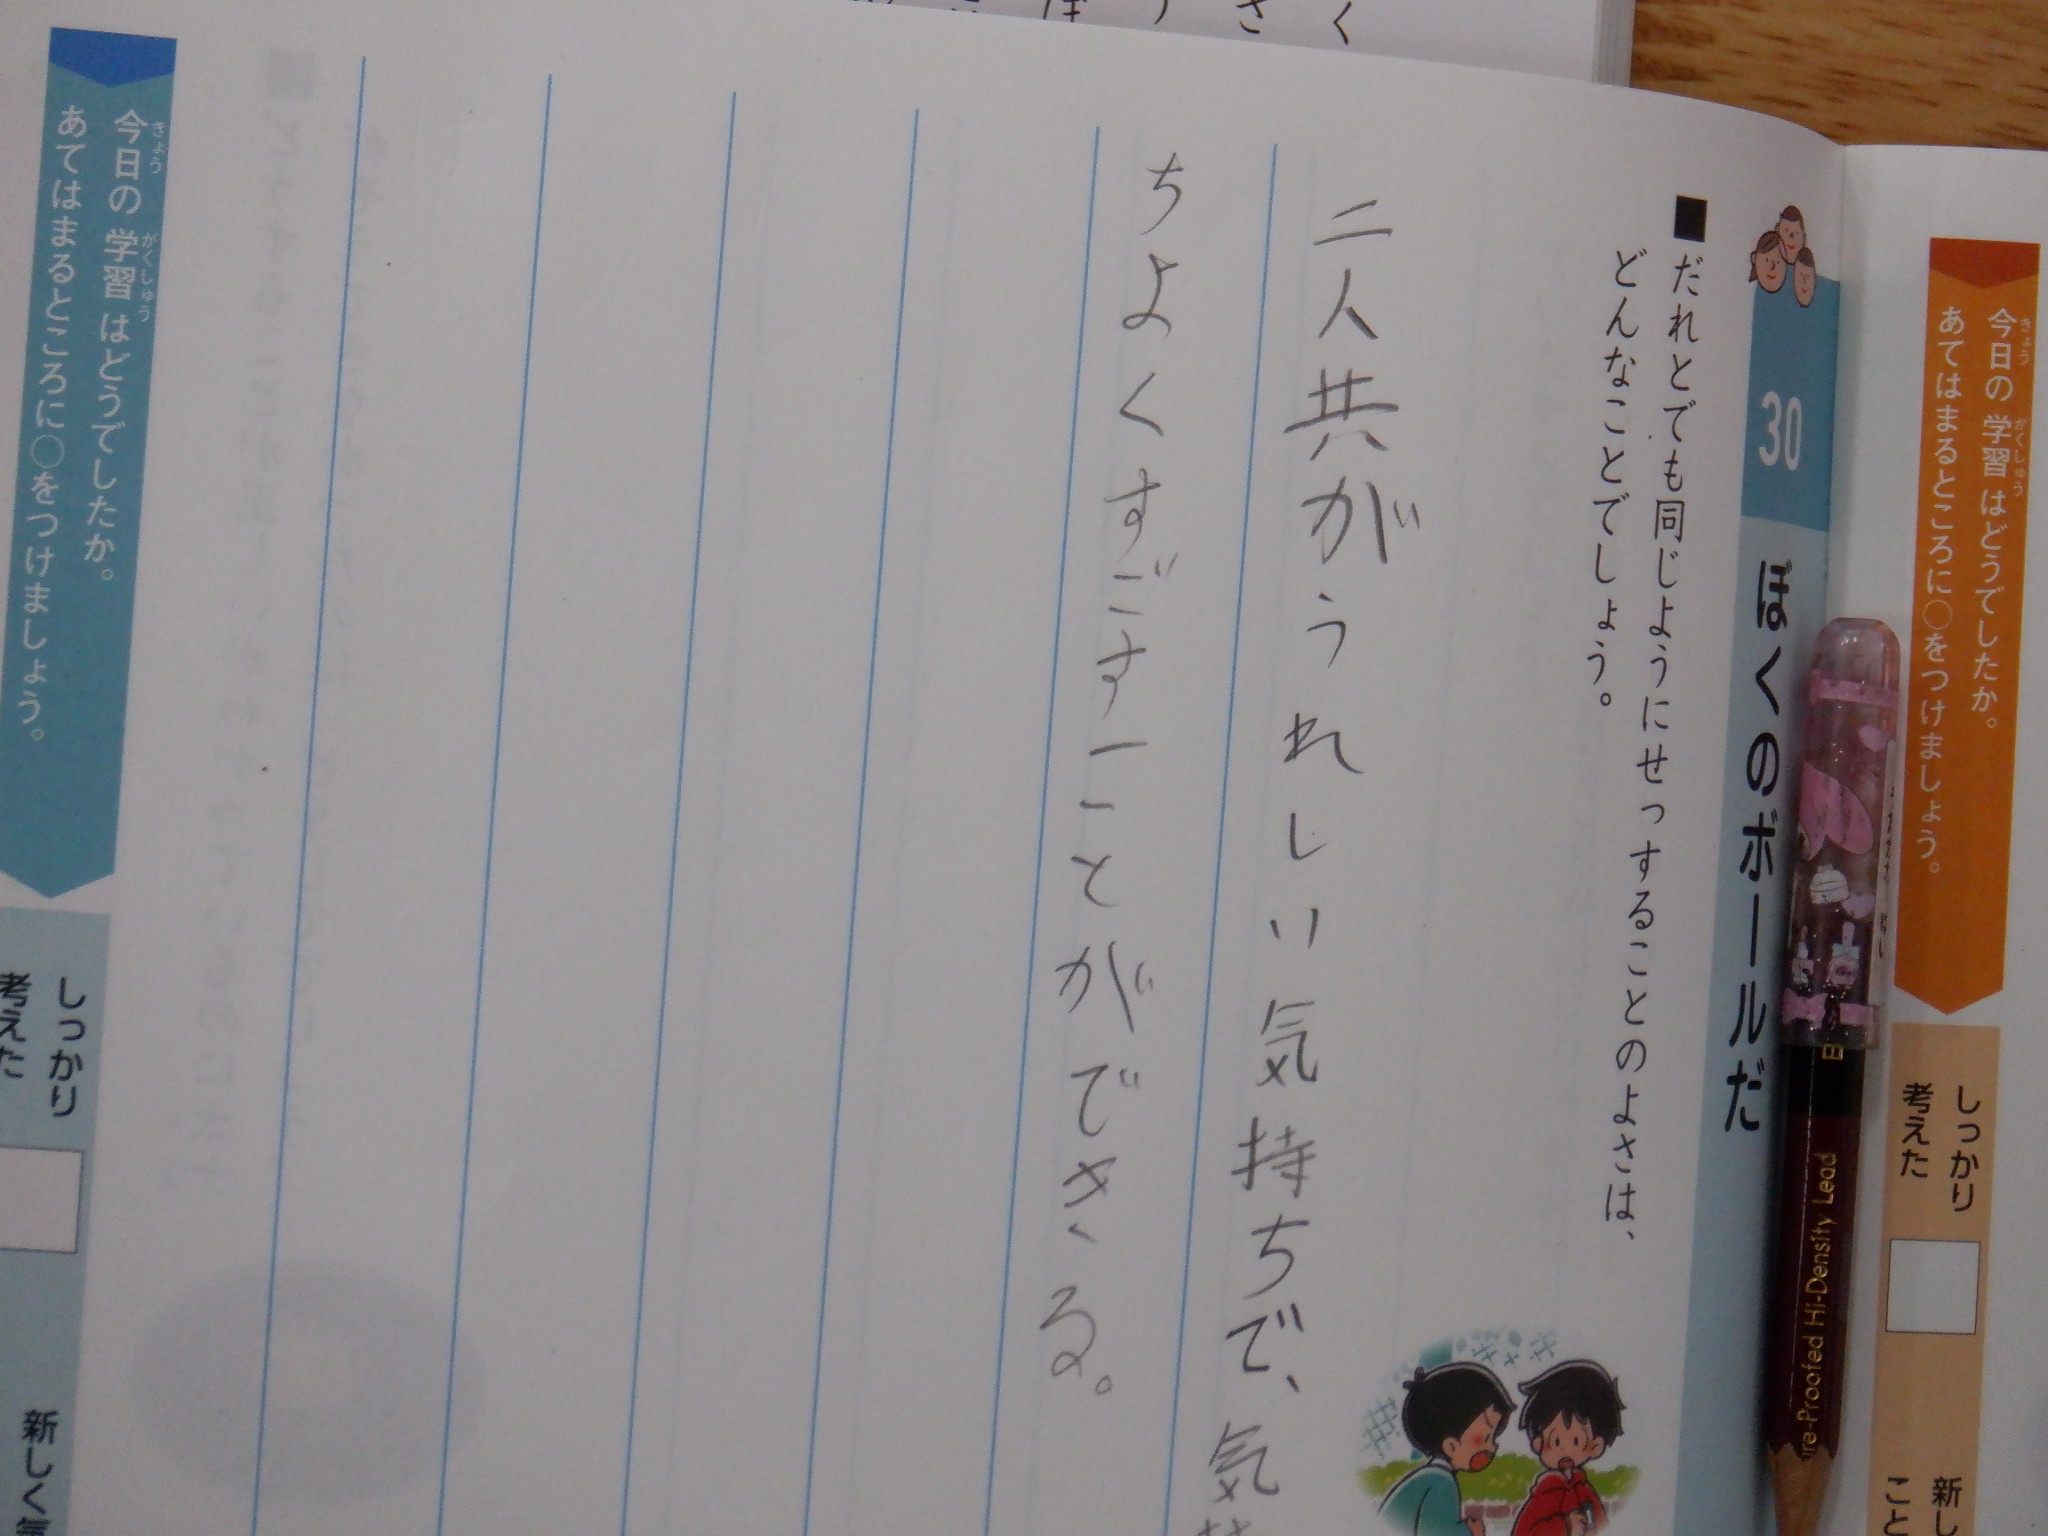 今日の学習はどうでしたか。
きょう がくしゅう
あてはまるところに○をつけましょう。
しっかり
考えた
新し
こと
30 ぼくのボールだ
■だれとでも同じようにせっすることのよさは、
どんなことでしょう。
二人共がうれしい気持ちで、気
ちよくすごすことができる。
今日の学習はどうでしたか。
きょう がくしゅう
あてはまるところに○をつけましょう。
しっかり
考えた
新しく気
re-Proofed Hi-Density Lead
B